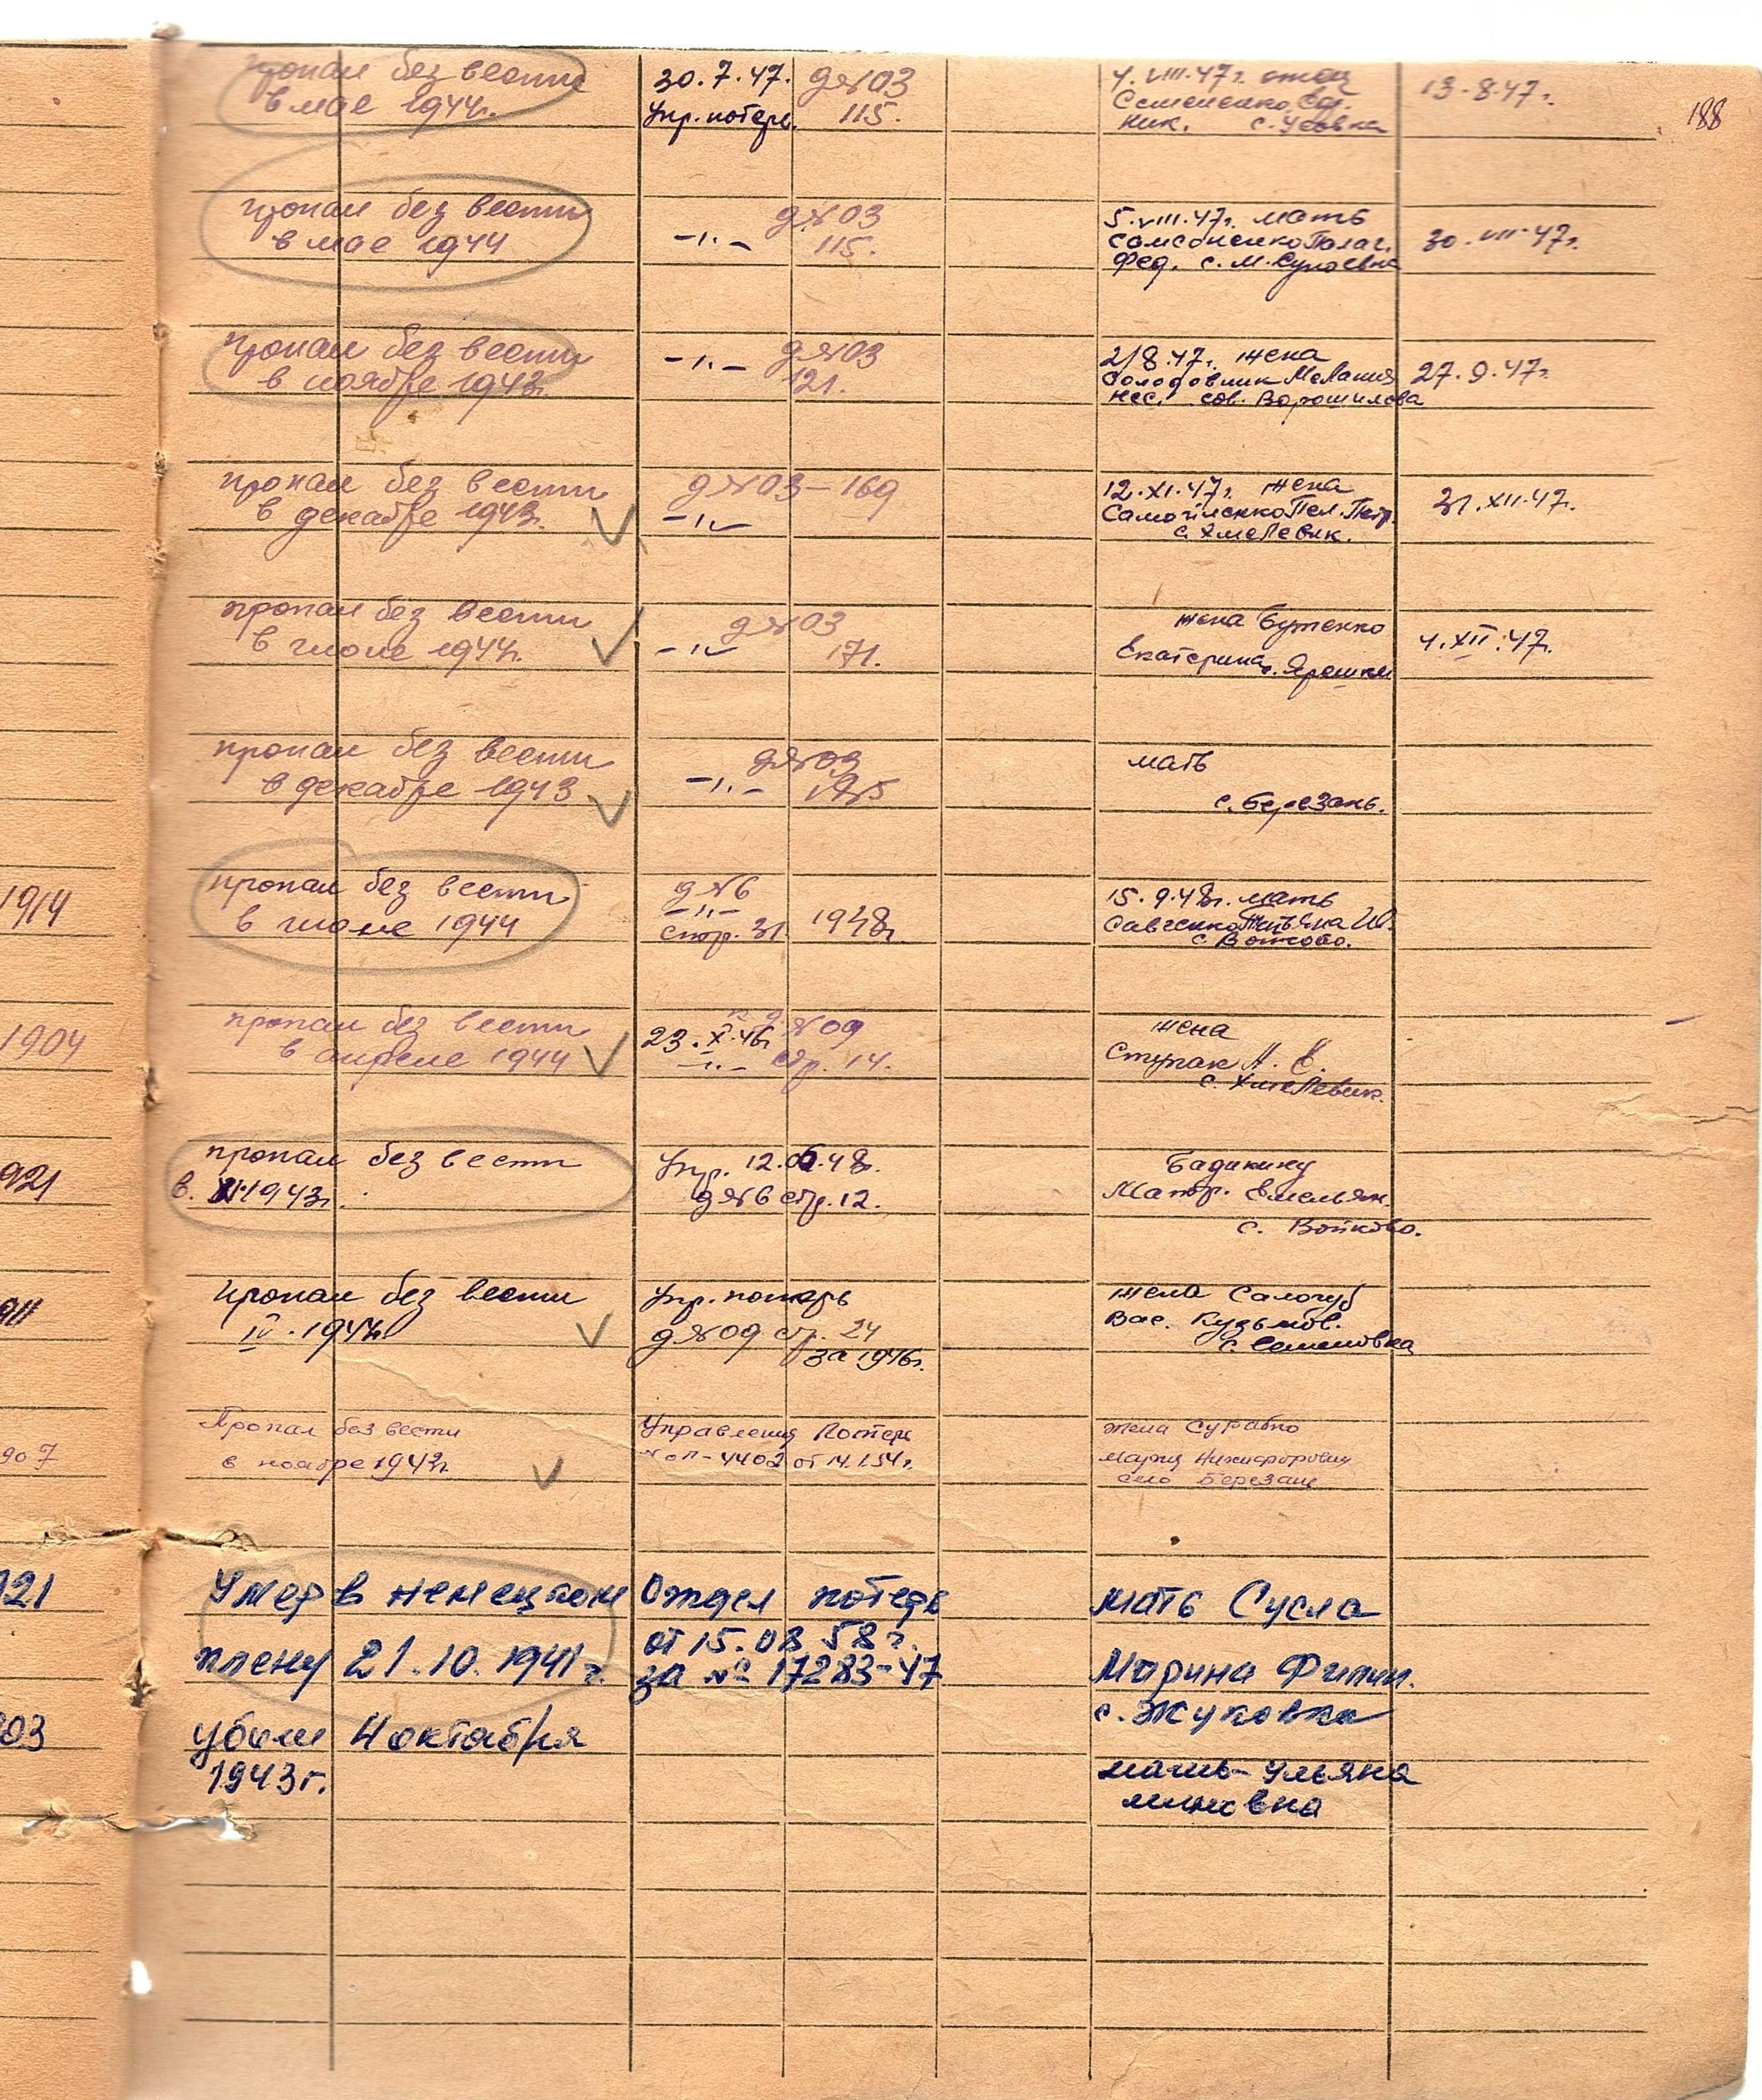 188
пропал без вести
в мае 1944г.
30.7.47.
Упр. потерь.
д№03
115.
4.VIII.47г. отец
Ник. с. Усовка
13.8.47г.
пропал без вести
в мае 1944
-"-
д№03
115.
5.VIII.47г. мать
Фед. с. М. Супоевка
30.VIII.47г.
пропал без вести
в ноябре 1943г.
-"-
д№03
121.
2/8.47г. жена
Солодовник Мелания
сов. Ворошилова
27.9.47г.
пропал без вести
в декабре 1943г.
д№03-169
-"-
12.XI.47г. жена
Пел. Петр.
с. Хмелевик.
31.XII.47г.
пропал без вести
в июне 1944г.
д№03
-"- 171.
жена Бутенко
Екатерина с. Ярешки
4.XII.47г.
пропал без вести
в декабре 1943
д№03
-"-
мать
с. Березань.
1914
пропал без вести
в июне 1944
д№6
-"-
стр. 31. 1948г.
15.9.48г. мать
Савченко Татьяна Ив.
с. Войково.
1904
пропал без вести
в апреле 1944
23.X.46г. №09
-"- стр. 14.
жена
Ступак А. Е.
с. Хмелевик.
921
пропал без вести
в 1943г.
Упр. 12.06.48г.
д№6 стр. 12.
Бадикину
Матр. Емельян.
с. Войково.
911
пропал без вести
IV.1944г.
Упр. потерь
д№09 стр. 24
за 1946г.
жена Салогуб
Вас. Кузьмов.
с. Семеновка
907
Пропал без вести
в ноябре 1943г.
Управления Потерь
№ оп-4402 от 14.1.54г.
жена Сурабко
Мария Никифоровна
село Березань
121
Умер в немецком
плену 21.10.1941г.
Отдел потерь
от 15.08.58г.
за № 17283-47
мать Сусла
Марина Филип.
с. Жуковка
903
убит 4 октября
1943г.
мать-Ульяна